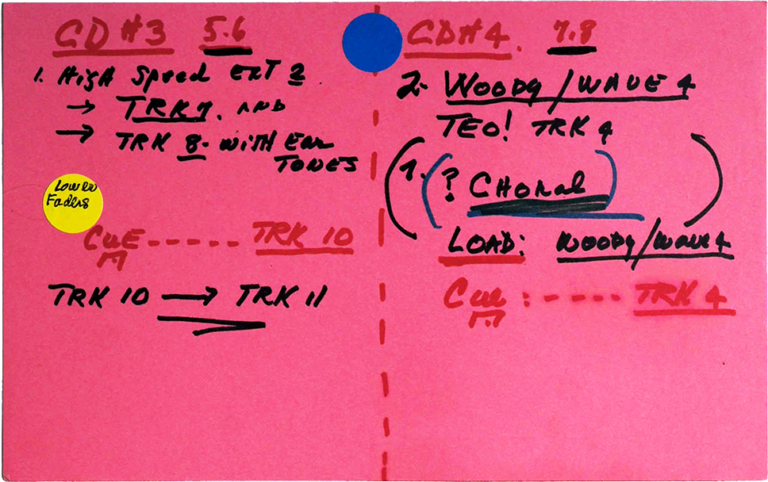 CD #3 5.6
1. High Speed EXT 2
→ TRK 7. AND
→ TRK 8 - with Ear
TONES
Lower
Faders
CuE ----- TRK 10
TRK 10 → TRK 11
CD#4. 7.8
2. Woody/WAVE 4
TEO! TRK 4
1. (? CHORAL)
LOAD: Woody/WAVE 4
Cue: ---- TRK 4